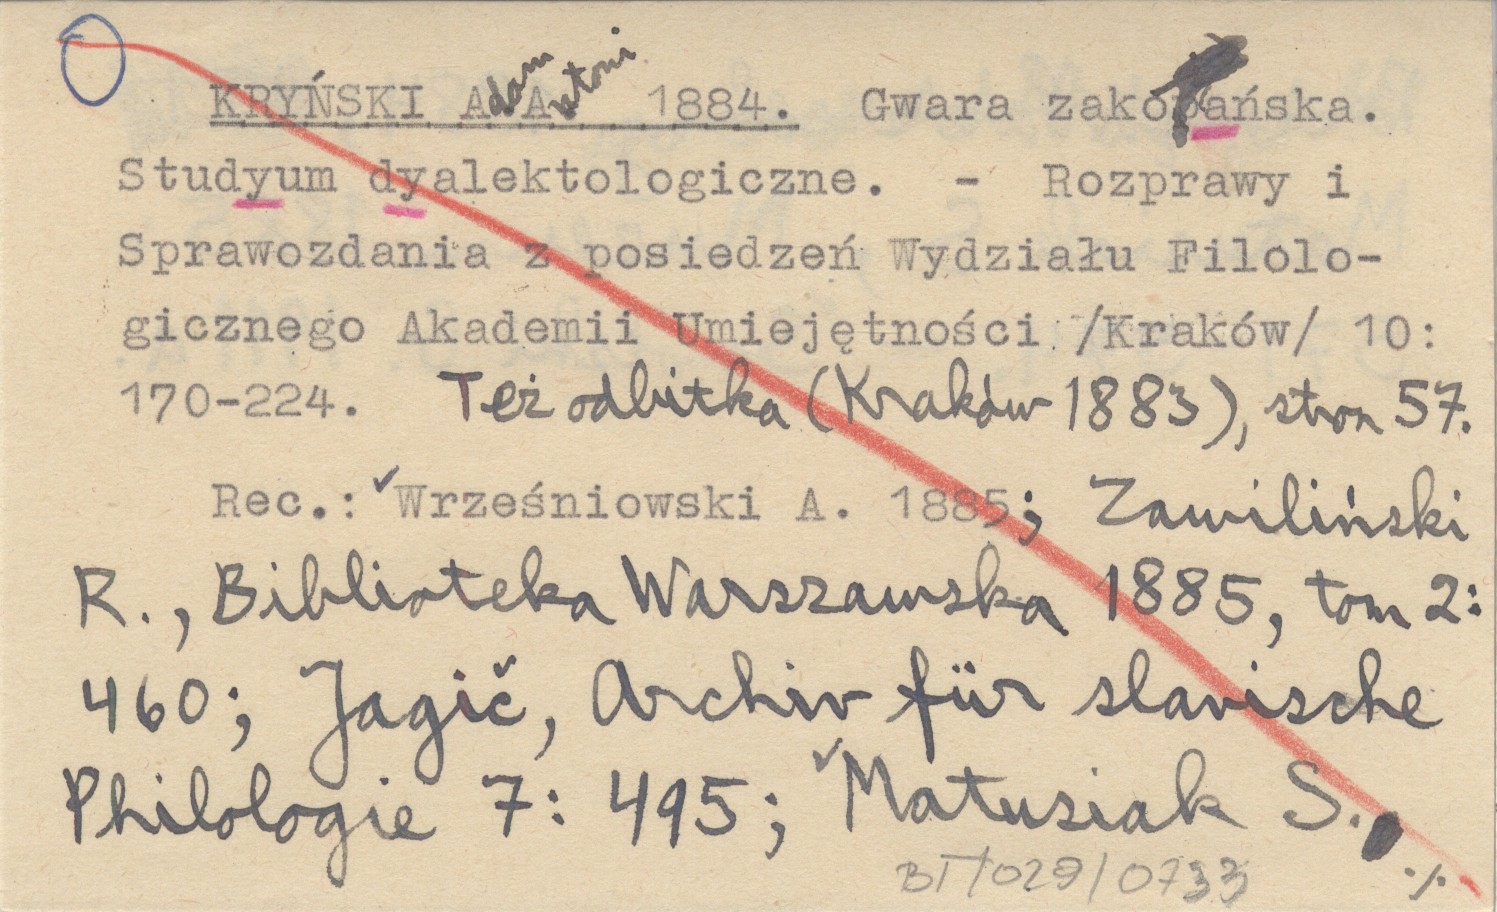 KRYŃSKI Adam Antoni 1884. Gwara zakopańska.
Studyum dyalektologiczne. - Rozprawy i
Sprawozdania z posiedzeń Wydziału Filolo-
gicznego Akademii Umiejętności /Kraków/ 10:
170-224. Też odbitka (Kraków 1883), stron 57.
Rec.: Wrześniowski A. 1885; Zawiliński
R., Biblioteka Warszawska 1885, tom 2:
460; Jagič, Archiv für slavische
Philologie 7: 495; Matusiak S.
./.
BT/029/0733